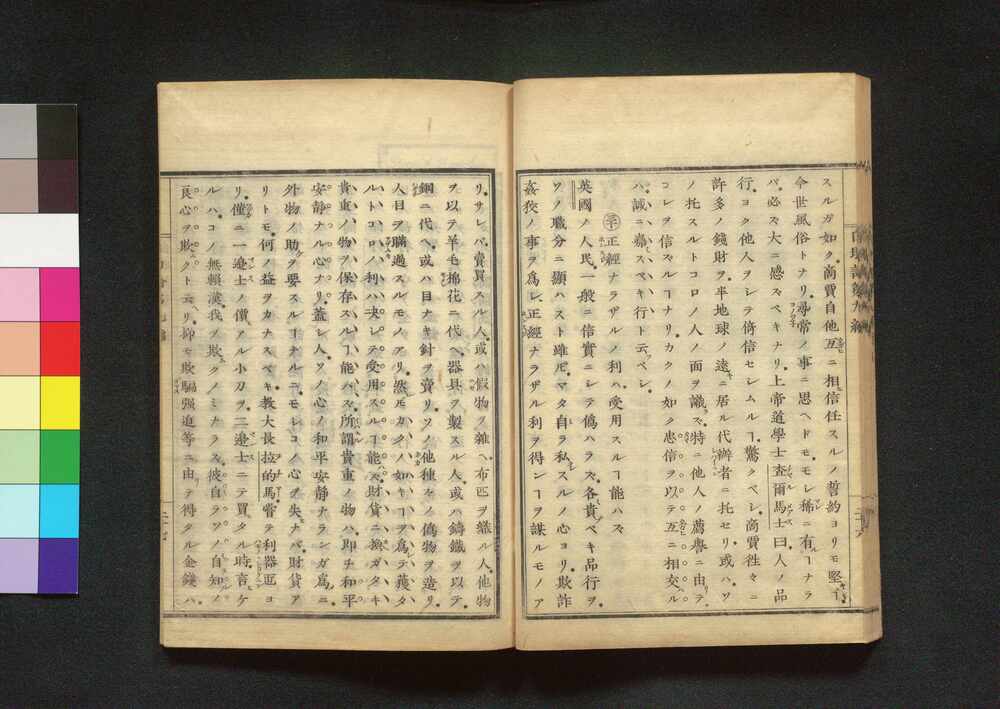 スルガ如ク商賈自他互ニ相信任スルノ誓約ヨリモ堅ク
今世風俗トナリ尋常ノ事ニ思ヘドモモレ稀ニ有ルヿナラ
バ必ス大ニ感スベキナリ上帝道學士査爾馬士曰人ノ品
行ヨク他人ヲシテ倚信セレムルヿ驚クベレ商賈徃々ニ
許多ノ錢財ヲ半地球ノ遠キニ居ル代辦者ニ托セリ或ハソ
ノ托スルトコロノ人ノ面ヲ識ラズ特ニ他人ノ薦擧ニ由リテ
コレヲ信スルヿナリカクノ如ク忠信ヲ以テ互ニ相交ル
ハ誠ニ嘉スベキ行ト云ベレ
正經ナラザルノ利ハ受用スルヿ能ハズ
英國ノ人民一般ニ信實ニシテ僞ハラズ各貴ベキ品行ヲ
ソノ職分ニ顯ハスト雖𪜈マタ自ラ私スルノ心ヨリ欺詐
姦狡ノ事ヲ爲レ正經ナラザル利ヲ得ンヿヲ謀ルモノア
リサレバ賣買スル人或ハ假物ヲ雜ヘ布匹ヲ織ル人他物
ヲ以テ羊毛棉花ニ代ヘ器具ヲ製スル人或ハ鑄鐵ヲ以テ
鋼ニ代ヘ或ハ目ナキ針ヲ賣リソノ他種々ノ僞物ヲ造リ
人目ヲ瞞過スルモノアリ然𪜈カクノ如キヿヲ爲テ獲タ
ルトコロノ利ハ決レテ受用スルヿ能ハズ財貨ニ換ガタキ
貴重ノ物ヲ保存スルヿ能ハズ所謂貴重ノ物ハ即チ和平
安靜ナル心ナリ蓋レ人ソノ心ノ和平安靜ナランガ爲ニ
外物ノ助ヲ要スルヿナルニモレコノ心ヲ失ナバ財貨ア
リトモ何ノ益ヲカナスベキ教大長拉的馬嘗テ利器匠ヨ
リ僅ニ一邊士ノ價アル小刀ヲ二邊士ニテ買タル時言ケ
ルハコノ無賴漢我ヲ欺クノミナラズ彼自ラソノ自知ノ
良心ヲ欺クト云リ抑モ欺騙强迫等ニ由テ得タル金錢ハ